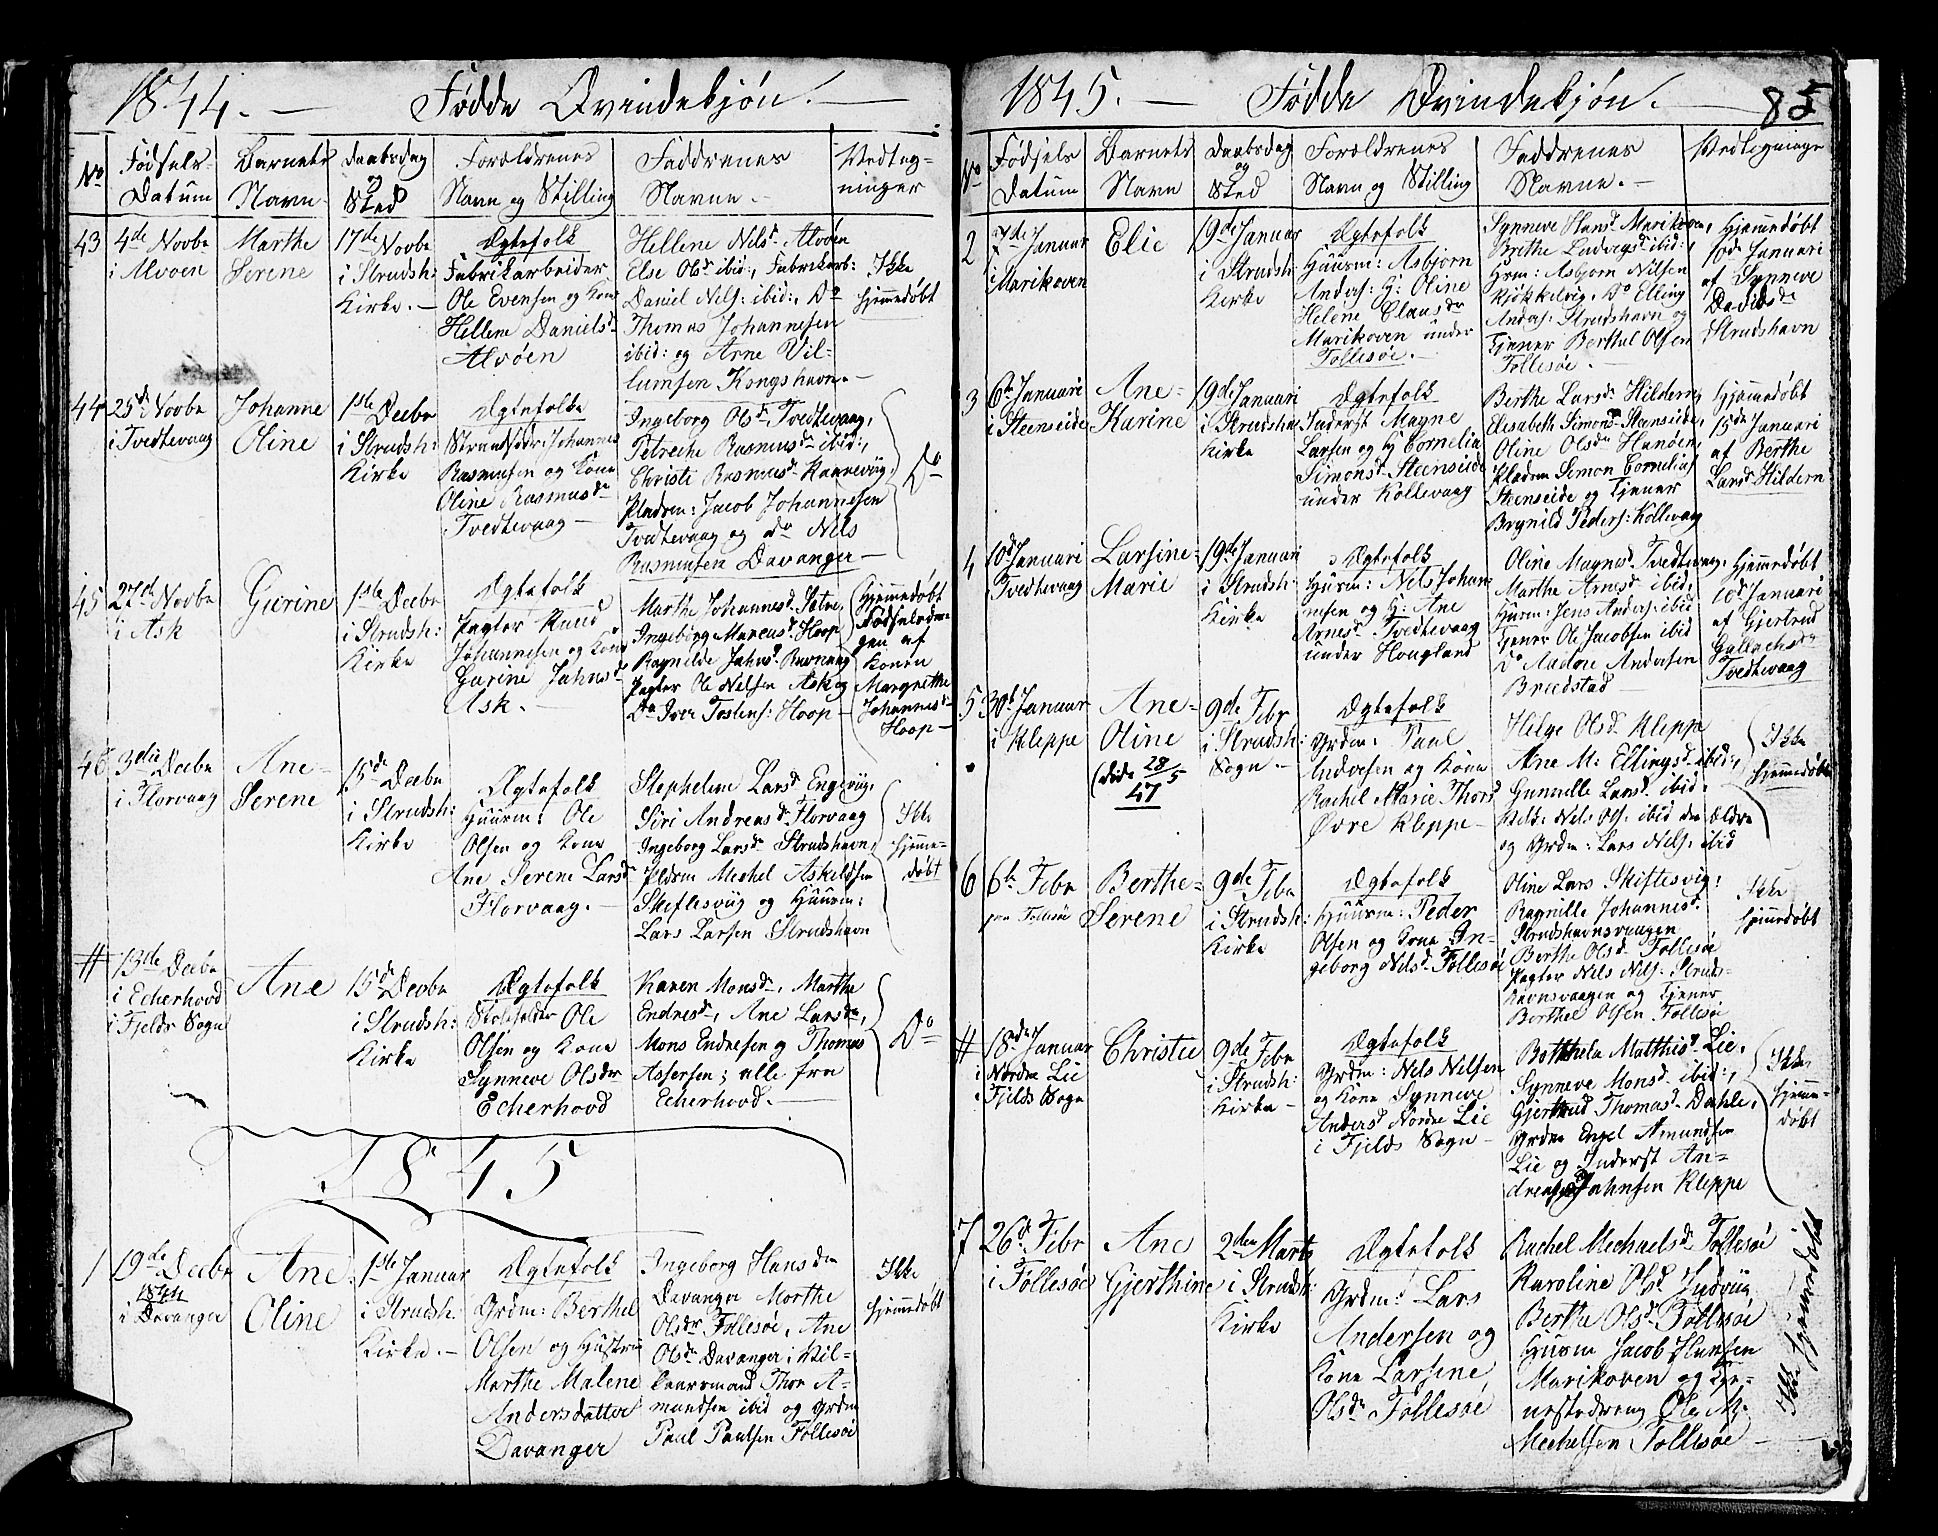 1844. — Fødde Qvindekjøn. —
No
Fødsels-
Datum
Barnets
Navn
Daabsdag
og
Sted
Forældrenes
Navn og Stilling
Faddrenes
Navne. —
Vedteg-
ninger
43
4de Novbr
i Alvøen
Marthe
Serene
17de Novbr
i Strudsh:
Kirke. —
Ægtefolk
Fabrikarbeider
Ole Evensen og Kone
Hellene Danielsdr
Alvøen
Hellene Nilsdr Alvøen
Else Olsdr ibid:, Fabrikarb:
Daniel Nils: ibid:, Do
Thomas Johannesen
ibid: og Arne Vil-
lumsen Kongshavn. —
Ikke
hjemmedøbt
44
25de Novbr
i Tvedtevaag
Johanne
Oline
1ste Decbr
i Strudsh:
Kirke
Ægtefolk
Johannes
Rasmusen og Kone
Oline Rasmusdr
Tvedtevaag —
Ingeborg Olsdr Tvedtevaag,
Petreche Rasmusdr ibid:,
Christi Rasmusdr
Pladsm: Jacob Johannesen
Tvedtevaag og do Nils
Rasmusen Davanger —
Do
45
27de Novbr
i Ask
Gurine
1ste Decbr
i Strudsh:
Kirke
Ægtefolk
Pagter Knud
Johannesen og Kone
Gurine Jahnsdr
Ask. —
Marthe Johannesdr
Ingeborg Marcusdr Hoop
Ragnilde Jahnsdr
Pagter Ole Nilsen Ask og
Do Iver Tostens: Hoop —
Hjemmedøbt
Fødselsda-
gen af
Konen
Margrethe
Johannesdr
Hoop —
46
3die Decbr
i Florvaag
Ane
Serene
15de Decbr
i Strudsh:
Kirke
Ægtefolk
Huusm: Ole
Olsen og Kone
Ane Serene Larsdr
Florvaag. —
Larsdr
Siri Andreasdr Florvaag
Ingeborg Larsdr Strudshavn,
Pldsm Mechel Askeldsen
Skiftesviig og Huusm:
Lars Larsen Strudshavn
Ikke
hjemme-
døbt
#
13de Decbr
i Echerhovd
i Fjelds Sogn
Ane
15de Decbr
i Strudsh:
Kirke
Ægtefolk
Ole
Olsen og Kone
Synneve Olsdr
Echerhovd
Karen Monsdr, Marthe
Endresdr, Ane Larsdr,
Mons Endresen og Thomas
Assersen; alle fra
Echerhovd. —
Do
1845
1
19de Decbr
1844
i Davanger
Ane
Oline
1ste Januar
i Strudsh.
Kirke. —
Ægtefolk
Grdm: Berthel
Olsen og Hustru
Marthe Malene
Andersdatter
Davanger
Ingeborg Hansdr
Davanger Marthe
Olsdr Follesøe, Ane
Olsdr Davanger;
Thor A-
mundsen ibid og Grdm
Paul Paulsen Follesøe
Ikke
hjemmedøbt
1845. — Fødde Qvindekjøn. — 85
No
Fødsels
Datum
Barnets
Navn
Daabsdag
og
Sted
Forældrenes
Navn og Stilling
Faddrenes
Navne. —
Vedtegninger
2
7de Januar
i Marikoven
Elie
19de Januar
i Strudsh:
Kirke
Ægtefolk
Huusm: Asbjørn
Anders: H: Oline
Helene Clausdr
Marikoven under
Follesøe. —
Synneve Hansdr Marikoven,
Brithe Ludvigsdr ibid:,
Hrm: Asbjørn Nilsen
Kjøkkelvig, Do Elling
Anders: Strudshavn og
Tjener Berthel Olsen
Follesøe. —
Hjemmedøbt
10de Januari
af Synneve
Davidsdr
Strudshavn
3
6te Januari
i Steenseide
Ane
Karine
19de Januari
i Strudshs
Kirke
Ægtefolk
Inderst Magne
Larsen og H: Cornelia
Simonsdr Steenseide
under Kollevaag
Berthe Larsdr Hildern,
Elisabeth Simonsdr Steenseide,
Oline Olsdr Hanøen,
Pladsm Simon Cornelius
Steenseide og Tjener
Brynild Peders: Kollevaag
Hjemmedøbt
15de Januari
af Berthe
Larsdr Hildern
4
10de Januari
Tvedtevaag
Larsine
Marie
19de Januari
i Strudsh:
Kirke
Ægtefolk
Huusm: Nils Johan-
nesen og H: Ane
Arnesdr Tvedtevaag
under Hougland
Oline Magnesdr Tvedtevaag,
Marthe Arnesdr ibid:
Huusm: Jens Anders: ibid
Tjener Ole Jacobsen ibid
Do Andersen
Bredstad —
Hjemmedøbt
10de Januari
af Gjertrud
Tvedtevaag
5
30te Januar
i Kleppe
Ane
Oline
(døde 28/5
47
9de Febr
i Strudsh:
Sogn —
Ægtefolk
Grdm: Paul
Andersen og Kone
Rachel Marie Thorsdr
Øvre Kleppe —
Helge Olsdr Kleppe
Ane M: Ellingsdr ibid:,
Gunnille Larsdr ibid:
Nils Ols: ibid den ældre
og Grdm: Lars Nils: ibid
Ikke
hjemmedøbt
6
6te Febr
paa Follesøe
Berthe
Serene
9de Febr
i Strudsh:
Kirke
Ægtefolk
Huusm: Peder
Olsen og Kone In-
geborg Nilsdr Follesøe
Oline Lars Skiftesvig:
Ragnille Johannesdr
Strudshavnsvaagen
Berthe Olsdr Follesøe
Pagter Nils Nils: Struds-
havnsvaagen og Tjener
Berthel Olsen Follesøe
Ikke
hjemmedøbt
#
18de Januar
i Nordre Lie
i Fjelds Sogn
Christie
9de Febr
i Strudsh:
Kirke —
Ægtefolk
Grdm: Nils Nilsen
og Kone Synneve
Andersdr Nordre Lie
i Fjelds Sogn —
Matthisdr Lie,
Synneve Monsdr ibid:,
Gjertrud Thomasdr Dahle,
Grdm Engel Amundsen
Lie og Inderst An-
dreas Jahnsen Kleppe
Ikke
hjemme-
døbt
7
26de Febr
i Follesøe
Ane
Gjerthine
2den Marts
i Strudsh:
Kirke
Ægtefolk
Grdm: Lars
Andersen og
Kone Larsine
Olsdr Follesøe
Rachel Mechaelsdr Follesøe
Karoline Olsdr
Berthe Olsdr Follesøe
Huusm Jacob Hansen
Marikoven og Tje-
nestedreng Ole M.
Mechelsen Follesøe —
Ikke hjemmedøbt